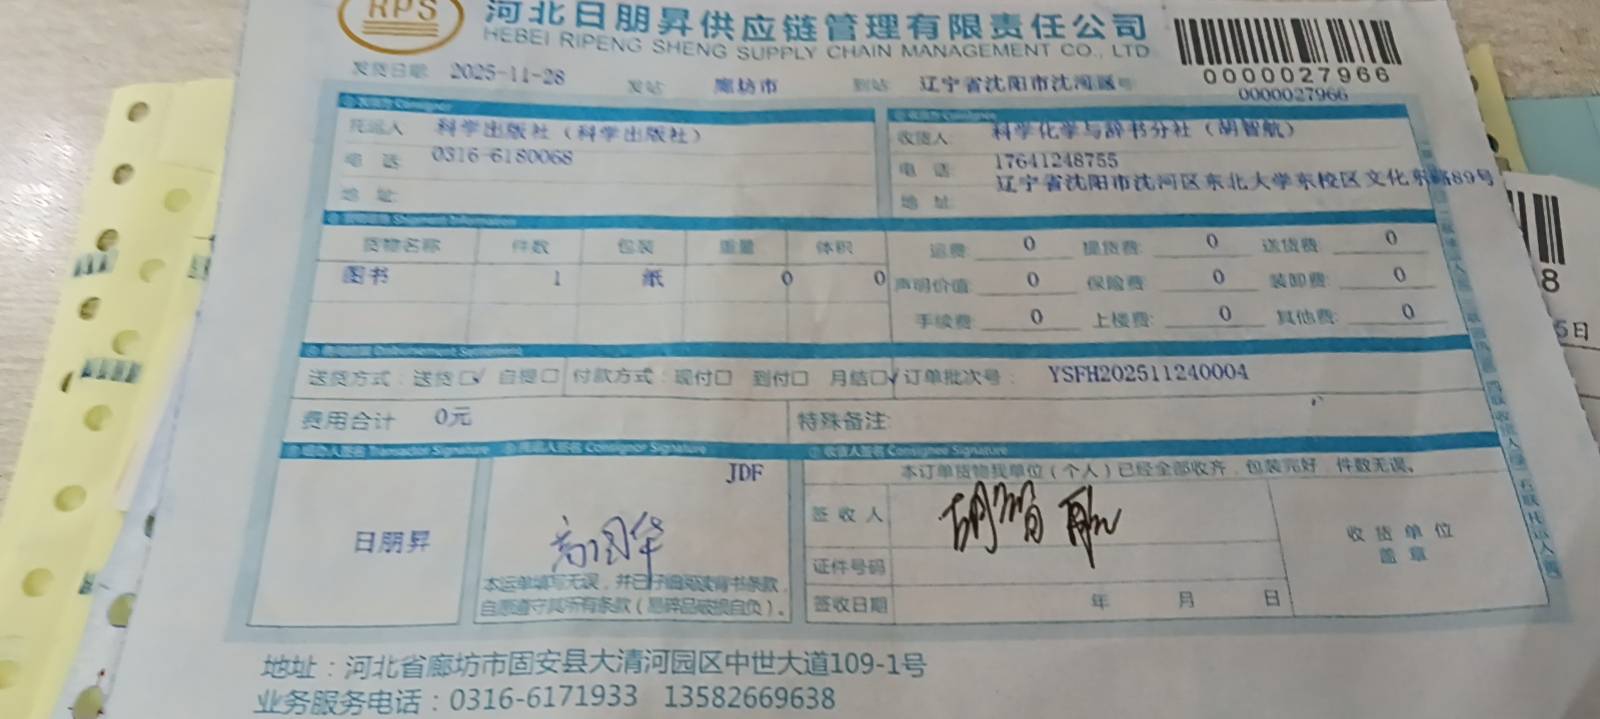 RPS
河北日朋昇供应链管理有限责任公司
HEBEI RIPENG SHENG SUPPLY CHAIN MANAGEMENT CO., LTD
0000027966
0000027966
发货日期 2025-11-28 发站 廊坊市 到站 辽宁省沈阳市沈河区
Consignor
托运人 科学出版社（科学出版社）
电 话 0316-6180068
地 址:
收货人 科学化学与辞书分社（胡智航）
电 话 17641248755
地 址 辽宁省沈阳市沈河区东北大学东校区文化东路89号
Shipment Information
货物名称 件数 包装 重量 体积
图书 1 纸 0 0
运费: 0 提货费: 0 送货费: 0
声明价值: 0 保险费: 0 装卸费: 0
手续费: 0 上楼费: 0 其他费: 0
Disbursement Settlement
送货方式：送货☑ 自提□ 付款方式：现付□ 到付□ 月结☑ 订单批次号： YSFH202511240004
费用合计 0元 特殊备注:
Transactor Signature
Consignor Signature
收货人签名 Consignee Signature
日朋昇
JDF
本运单填写无误，并已仔细阅读背书条款，
自愿遵守其所有条款（易碎品破损自负）。
本订单货物我单位（个人）已经全部收齐，包装完好 件数无误。
签 收 人 胡智航
证件号码
签收日期 年 月 日
收 货 单 位
盖 章
地址：河北省廊坊市固安县大清河园区中世大道109-1号
业务服务电话：0316-6171933 13582669638
8
5日